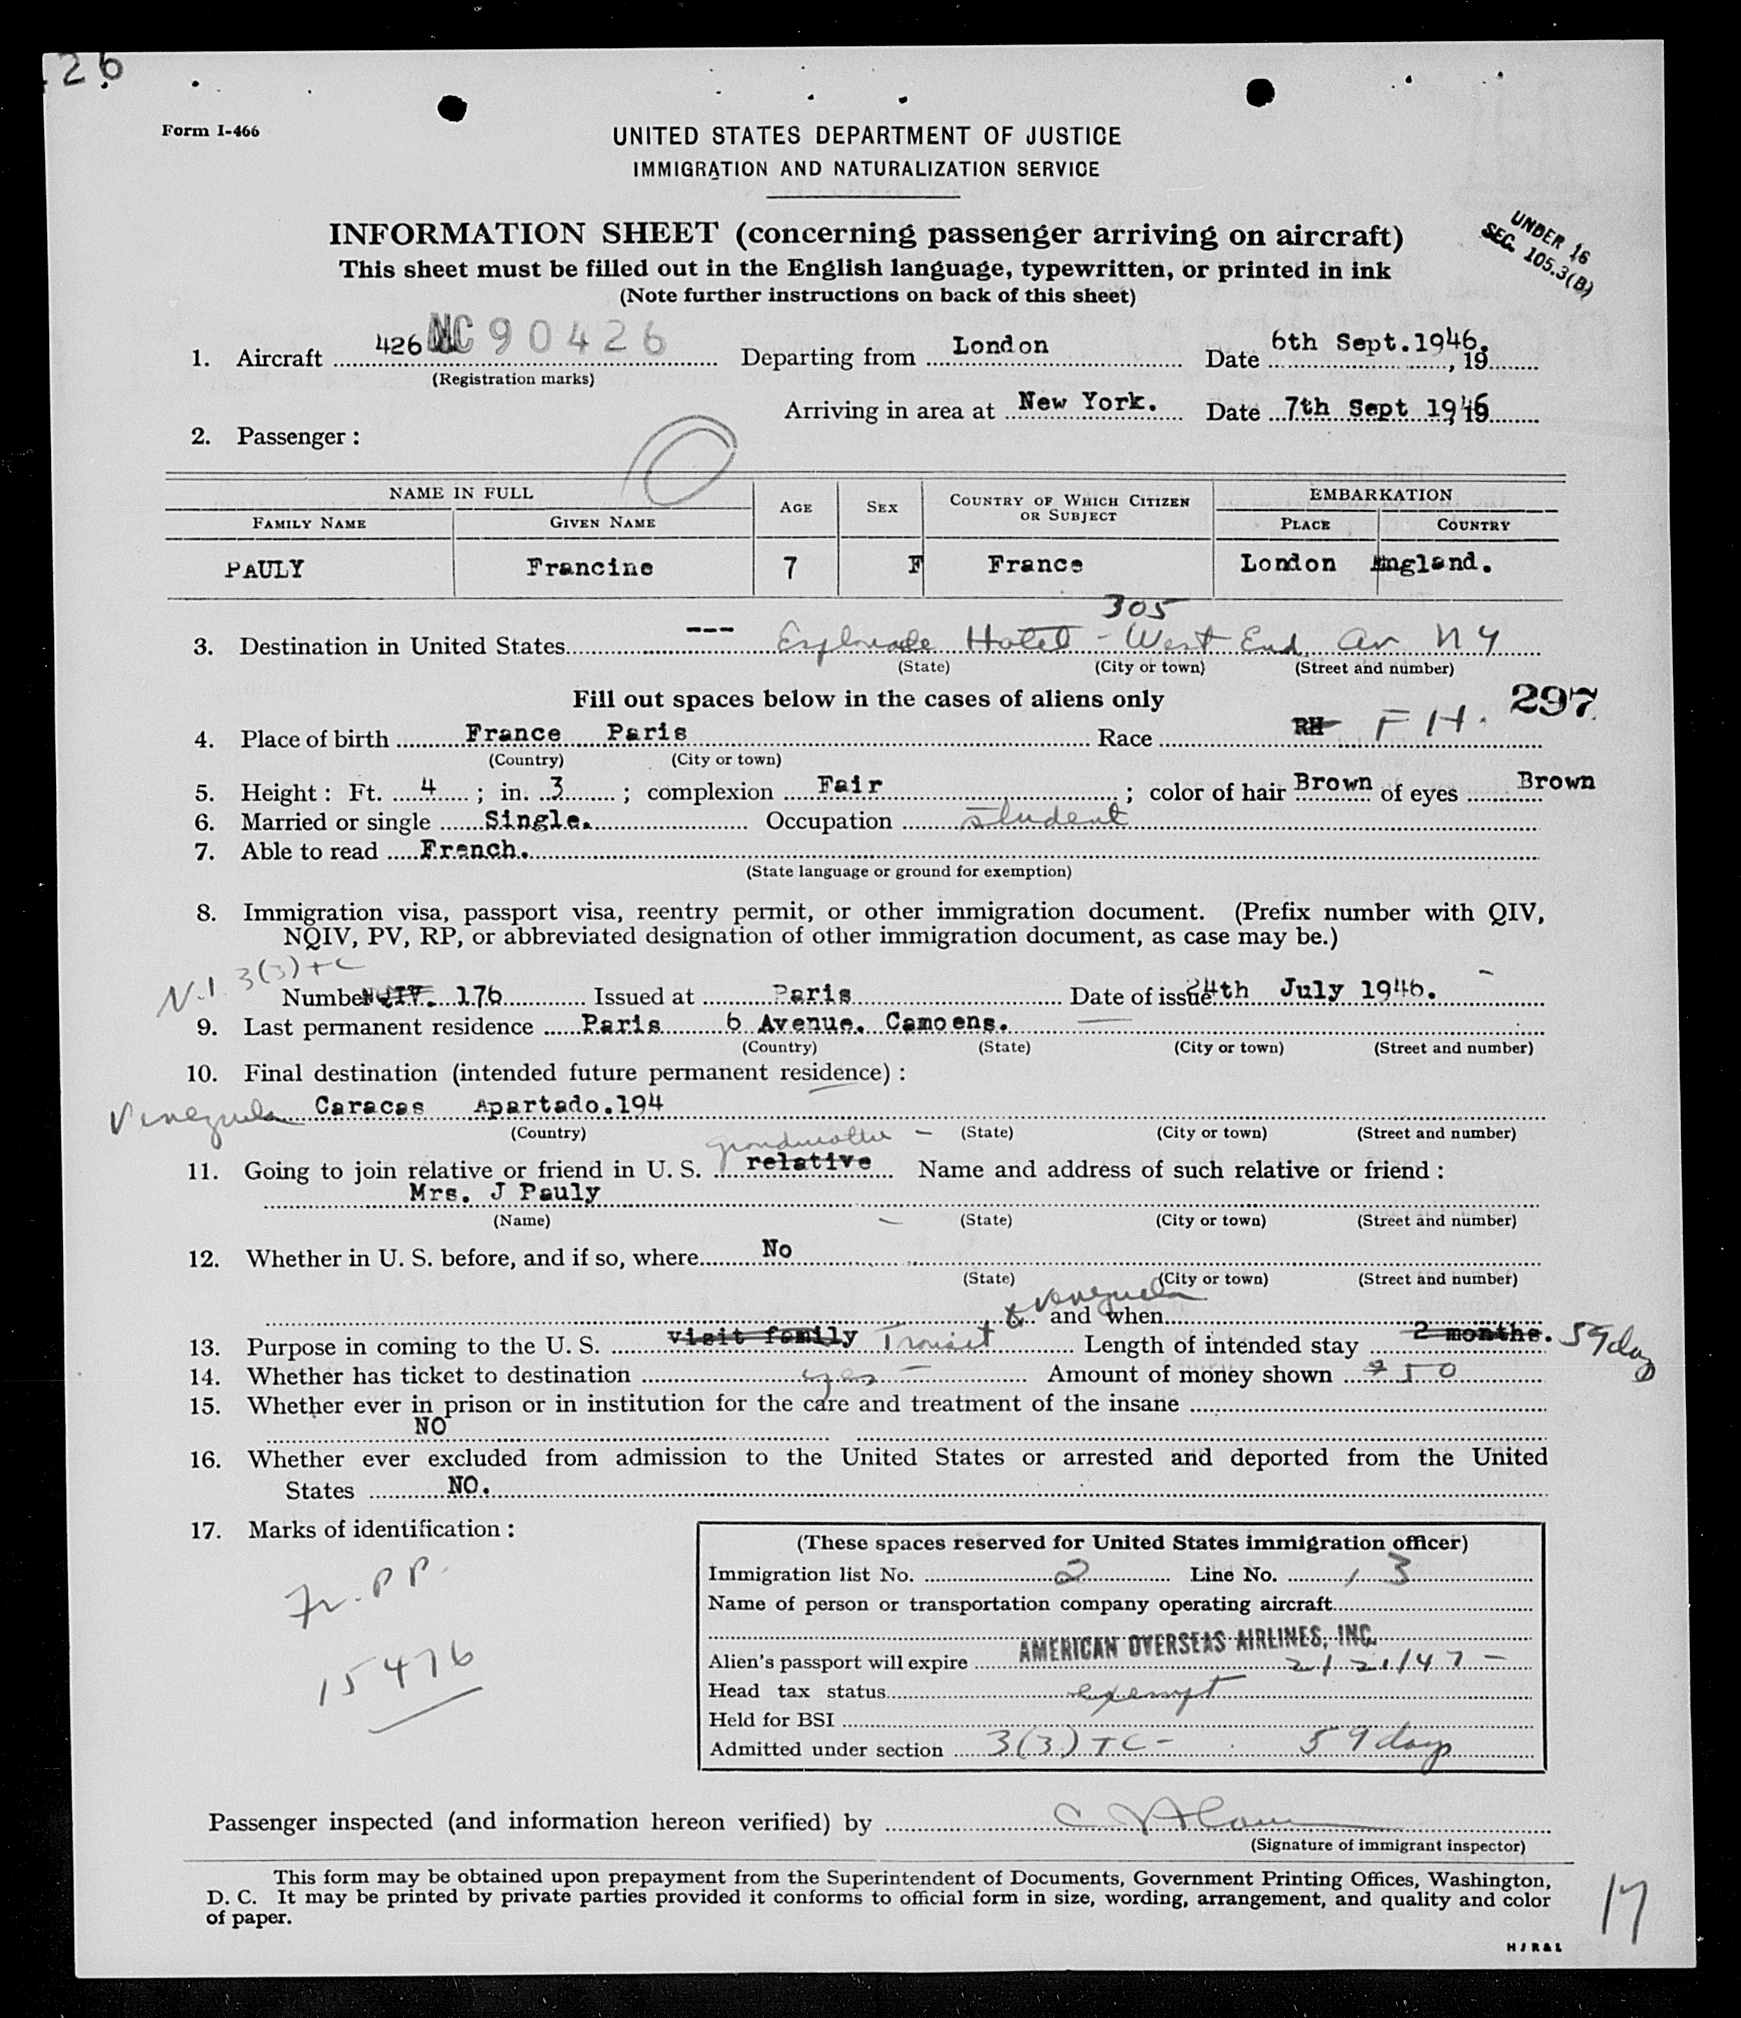 26
Form I-466
UNITED STATES DEPARTMENT OF JUSTICE
IMMIGRATION AND NATURALIZATION SERVICE
INFORMATION SHEET (concerning passenger arriving on aircraft)
This sheet must be filled out in the English language, typewritten, or printed in ink
(Note further instructions on back of this sheet)
UNDER 16
SEC. 105.3(B)
1. Aircraft 426 NC 90426 Departing from London Date 6th Sept. 1946, 19
(Registration marks)
Arriving in area at New York. Date 7th Sept 1946
2. Passenger :
NAME IN FULL AGE SEX COUNTRY OF WHICH CITIZEN OR SUBJECT EMBARKATION
FAMILY NAME GIVEN NAME PLACE COUNTRY
PAULY Francine 7 F France London England.
305
3. Destination in United States --- Esplanade Hotel - West End Av N Y
(State) (City or town) (Street and number)
Fill out spaces below in the cases of aliens only
297
4. Place of birth France Paris Race RH F H.
(Country) (City or town)
5. Height : Ft. 4 ; in. 3 ; complexion Fair ; color of hair Brown of eyes Brown
6. Married or single Single. Occupation Student
7. Able to read French.
(State language or ground for exemption)
8. Immigration visa, passport visa, reentry permit, or other immigration document. (Prefix number with QIV,
NQIV, PV, RP, or abbreviated designation of other immigration document, as case may be.)
N.I. 3(3)+C
Number NQIV. 176 Issued at Paris Date of issue 24th July 1946.
9. Last permanent residence Paris 6 Avenue. Camoens.
(Country) (State) (City or town) (Street and number)
10. Final destination (intended future permanent residence) :
Venezuela Caracas Apartado.194
(Country) (State) (City or town) (Street and number)
grandmother -
11. Going to join relative or friend in U. S. relative Name and address of such relative or friend :
Mrs. J Pauly
(Name) (State) (City or town) (Street and number)
12. Whether in U. S. before, and if so, where No
(State) (City or town) (Street and number)
and when
13. Purpose in coming to the U. S. visit family Transit to Venezuela Length of intended stay 2 months. 59 days
14. Whether has ticket to destination yes - Amount of money shown $50
15. Whether ever in prison or in institution for the care and treatment of the insane
NO
16. Whether ever excluded from admission to the United States or arrested and deported from the United
States NO.
17. Marks of identification :
Fr. P P.
15476
(These spaces reserved for United States immigration officer)
Immigration list No. 2 Line No. 3
Name of person or transportation company operating aircraft
AMERICAN OVERSEAS AIRLINES, INC.
Alien's passport will expire 2/21/47 -
Head tax status exempt
Held for BSI
Admitted under section 3(3) TC - 59 days
Passenger inspected (and information hereon verified) by
(Signature of immigrant inspector)
This form may be obtained upon prepayment from the Superintendent of Documents, Government Printing Offices, Washington,
D. C. It may be printed by private parties provided it conforms to official form in size, wording, arrangement, and quality and color
of paper.
17
H J R & L